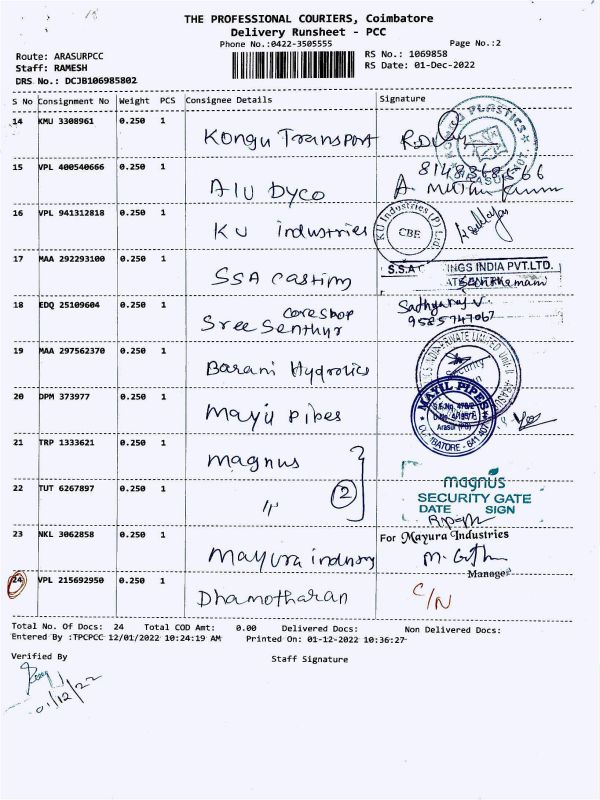 18
THE PROFESSIONAL COURIERS, Coimbatore
Delivery Runsheet - PCC
Phone No.:0422-3505555
Page No.:2
Route: ARASURPCC
RS No.: 1069858
Staff: RAMESH
RS Date: 01-Dec-2022
DRS No.: DCJB106985802
S No Consignment No Weight PCS Consignee Details Signature
14 KMU 3308961 0.250 1 Kongu Transport
PLASTICS
15 VPL 400540666 0.250 1 Alu Dyco
8148368566
16 VPL 941312818 0.250 1 KU industries
KU Industries (P) Ltd
CBE
17 MAA 292293100 0.250 1 SSA casting
INGS INDIA PVT.LTD.
18 EDQ 25109604 0.250 1 Sree Senthur Coreshop
Sathyaraj V.
9585747067
19 MAA 297562370 0.250 1 Barani Hydrolics
PRIVATE LIMITED
Security
20 DPM 373977 0.250 1 Mayil pipes
MAYIL PIPES
Arasur (PO)
21 TRP 1333621 0.250 1 magnus
22 TUT 6267897 0.250 1 〃 2
magnus
SECURITY GATE
DATE SIGN
23 NKL 3062858 0.250 1 Mayura industry
For Mayura Industries
Manager
24 VPL 215692950 0.250 1 Dhamotharan C/N
Total No. Of Docs: 24 Total COD Amt: 0.00 Delivered Docs: Non Delivered Docs:
Entered By :TPCPCC 12/01/2022 10:24:19 AM Printed On: 01-12-2022 10:36:27
Verified By
Staff Signature
01/12/22